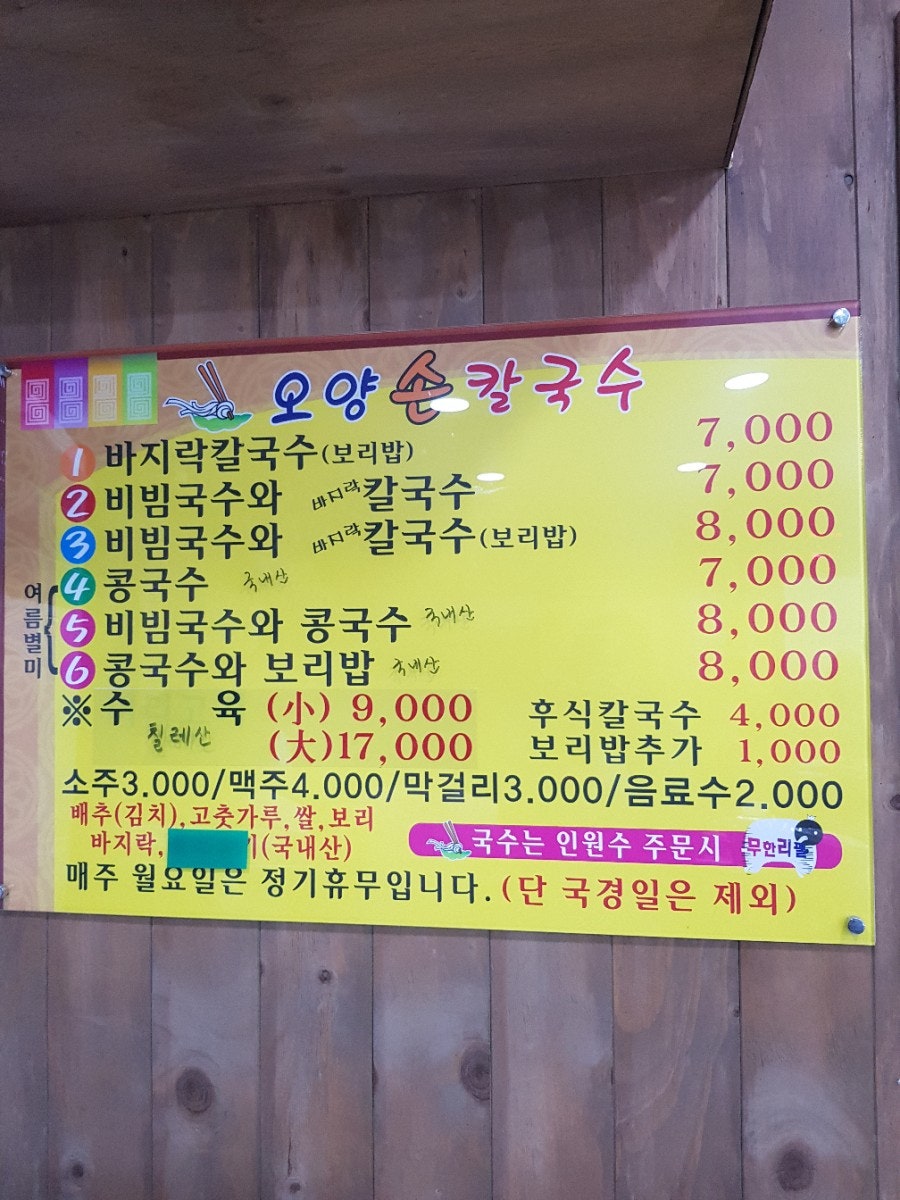 오양손칼국수
1 바지락칼국수(보리밥) 7,000
2 비빔국수와 바지락칼국수 7,000
3 비빔국수와 바지락칼국수(보리밥) 8,000
4 콩국수 국내산 7,000
5 비빔국수와 콩국수 국내산 8,000
6 콩국수와 보리밥 국내산 8,000
여름별미
※수 육 (小) 9,000 후식칼국수 4,000
칠레산 (大)17,000 보리밥추가 1,000
소주3.000/맥주4.000/막걸리3.000/음료수2.000
배추(김치),고춧가루,쌀,보리
바지락, 기(국내산)
국수는 인원수 주문시 무한리필
매주 월요일은 정기휴무입니다.(단 국경일은 제외)